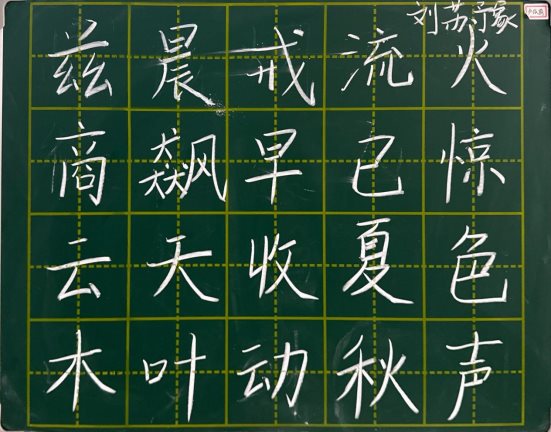 刘苏豫
兹晨戒流火
商飙早已惊
云天收夏色
木叶动秋声